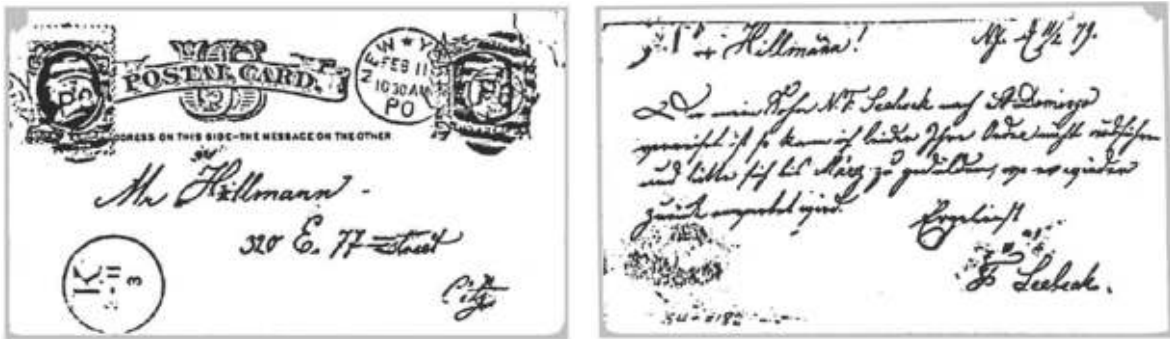 US
POSTAL CARD.
NEW Y
FEB 11
10 30 AM
PO
DRESS ON THIS SIDE-THE MESSAGE ON THE OTHER
Mr Hillmann -
320 E. 77 Street
City
K
11
3
Hillmann! NY. d 11/2 79.
Da mein Sohn N. F. Seebeck nach St Domingo
verreist ist so kann ich leider Ihre Order nicht ausführen
und bitte sich bis März zu gedulden, wo er wieder
zurück erwartet wird.
Ergebenst
F Seebeck.